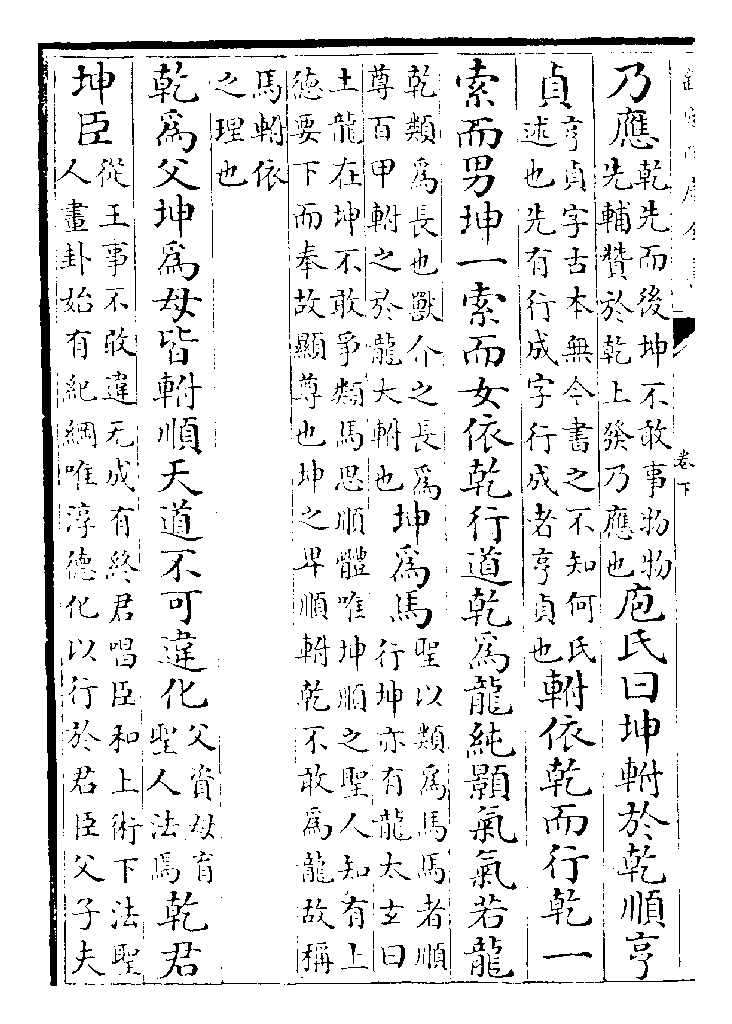 卷下
乃應乾先而後坤不敢事物物
先輔贊於乾上發乃應也庖氏曰坤軵於乾順亨
貞亨貞字古本無今書之不知何氏
述也先有行成字行成者亨貞也軵依乾而行乾一
索而男坤一索而女依乾行道乾為龍純顥氣氣若龍
乾類為長也獸介之長為
尊百甲軵之於龍大軵也坤為馬聖以類為馬馬者順
行坤亦有龍太玄曰
土龍在坤不敢爭類馬思順體唯坤順之聖人知有上
德要下而奉故顯尊也坤之卑順軵乾不敢為龍故稱
馬軵依
之理也
乾為父坤為母皆軵順天道不可違化父資母育
聖人法焉乾君
坤臣從王事不敢違无成有終君唱臣和上術下法聖
人畫卦始有紀綱唯淳德化以行於君臣父子夫